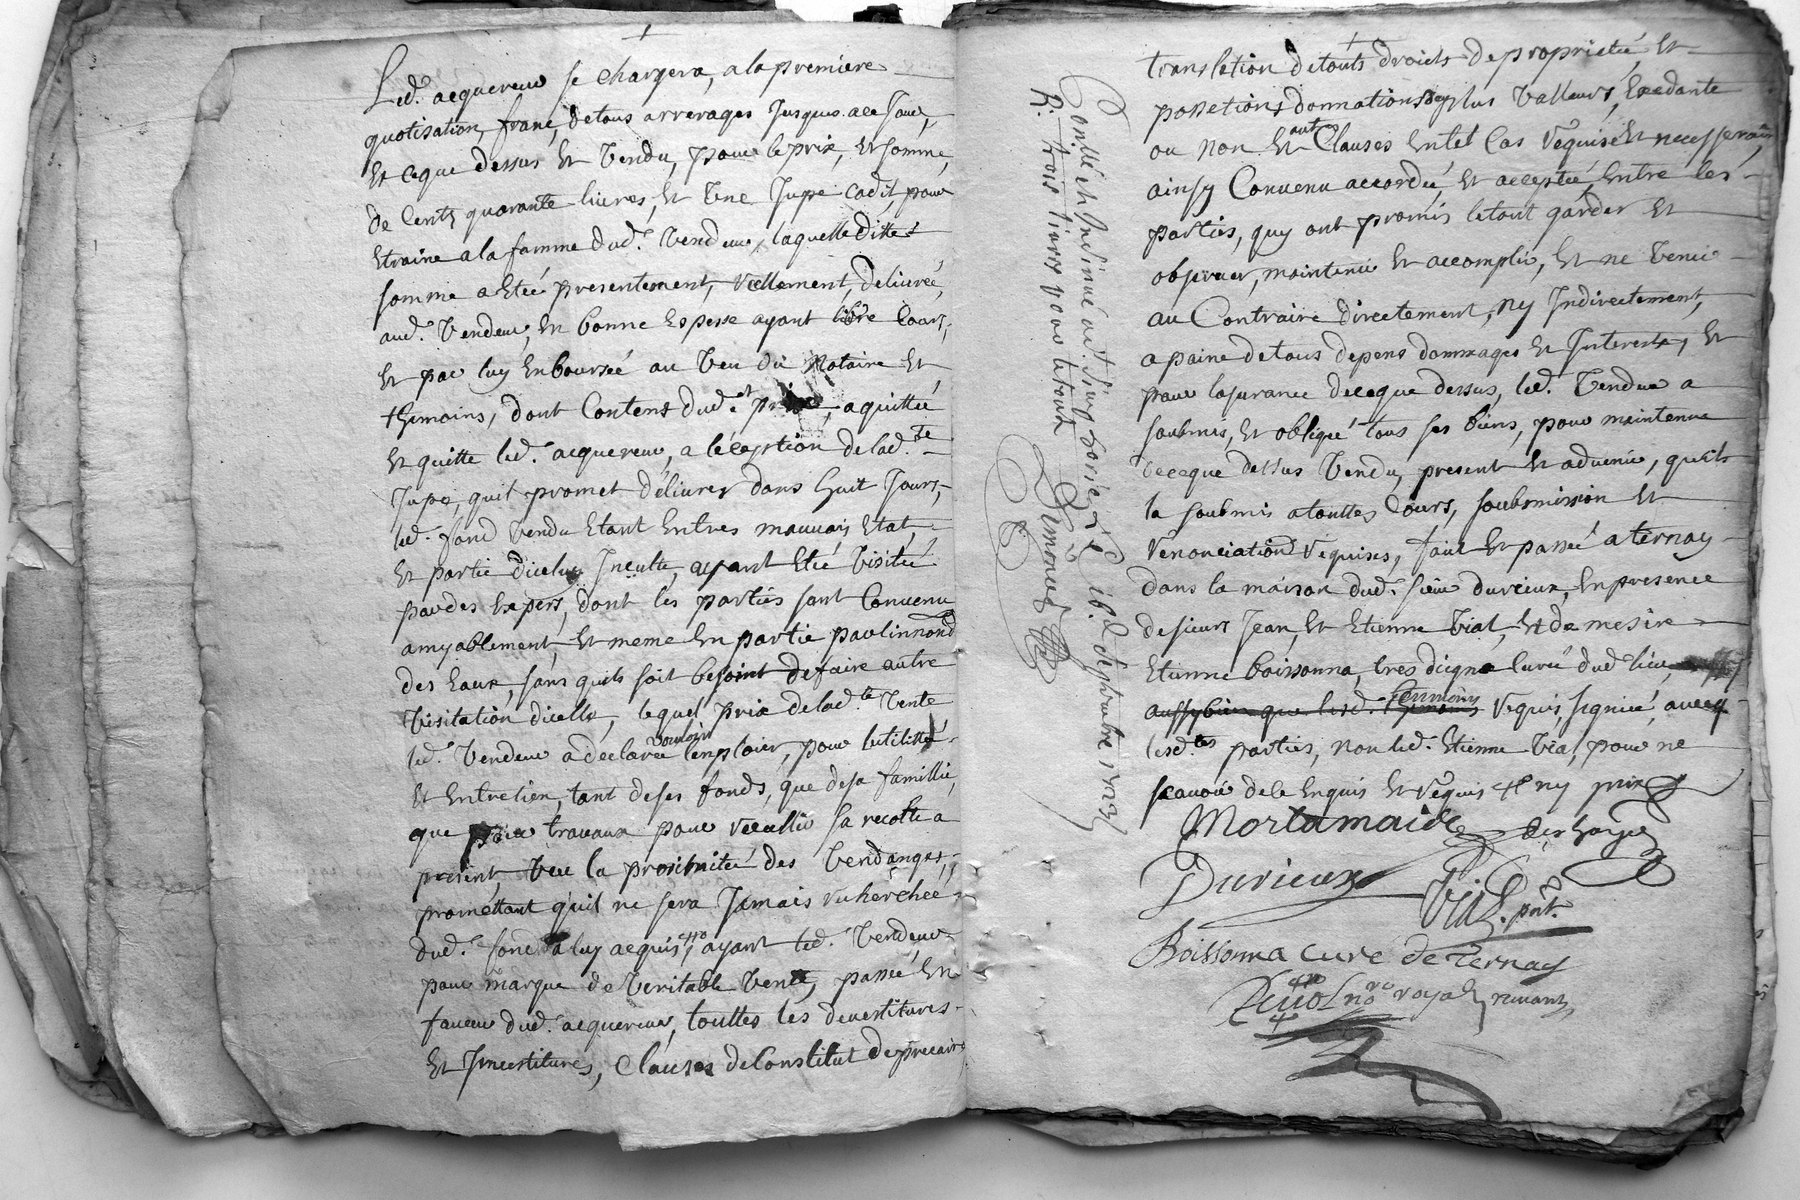 Led. acquereur se chargera, a la premiere
quotisation, franc, de tous arrerages jusques a ce jour,
Et ce que dessus Et Vendu, pour le prix, Et somme,
de Cents quarante livres, Et Une Jupe cadit, pour
Etraine a la famme dud. Vendeur, laquelle ditte
somme a Eteé presentement, reellement, delivreé,
aud. Vendeur, En bonne Espesse ayant libre Cours,
Et par luy Emboursée au Veu du Notaire Et
temoins, dont Contens dud. prix, aquitté
Et quitte led. acquereur, a l'éception de lad.te
Jupe, qu'il promet délivrer dans huit Jours,
led. fond Vendu Etant En tres mauvais Etat,
Et partie diceluy Inculte, ayant Eté Visitée
par des Expers, dont les parties sont Convenu
amyablement, Et meme En partie par linnond
des Eaux, sans quils soit besoint de faire autre
Visitation dicelle, lequel prix de lad.te Vente
led. Vendeur a declaré vouloir Emploier, pour lutilitté
Et Entretien, tant de ses fonds, que de sa famillie,
que pour travaux pour receullir sa recolte a
present, Veu la prosimiteé des Vendanges,
promettant qu'il ne sera Jamais rucherchée
dud. fond a luy acquis, ayant led. Vendeur
pour marque de Veritable Vente, passée En
faveur dud. acquereur, touttes les devestitures
Et Investitures, Clauses de Constitut de precaire
translation de touts droits de proprieteé, Et
possetions donnations de plus Valleurs, Excedante
ou non Et aut. Clauses En tel Cas requise Et necesseraire
ainsy Convenu accordeé, Et accepteé Entre les
parties, quy ont promis le tout garder Et
observer, maintenir Et accomplir, Et ne Venir
au Contraire directement, ny Indirectement,
a paine de tous depens dommages Et Interests, Et
pour lasurance de ce que dessus, led. Vendeur a
soubmis, Et obligé tous ses biens, pour maintenue
de ce que dessus Vendu, present Et advenir, qu'ils
la soubmis a touttes Cours, soubmission Et
renonciation requises, fait Et passeé a ternay
dans la maison dud. sieur durieux, En presence
de sieurs Jean, Et Etienne Vial, Et de mesire
Etienne boissonna, tres digne Curé dud. lieu,
aussybien que lesd. temoins requis, signieé, avecq
lesd.tes parties, non led. Etienne Vial, pour ne
scavoir de le Enquis Et requis ny prix
Mortamaid
Durieux
Vial. pnt.
Boissonna Curé de Ternay
no.re royal
Conllé et Insinué a
R. trois livres pour le tout
septembre 1723